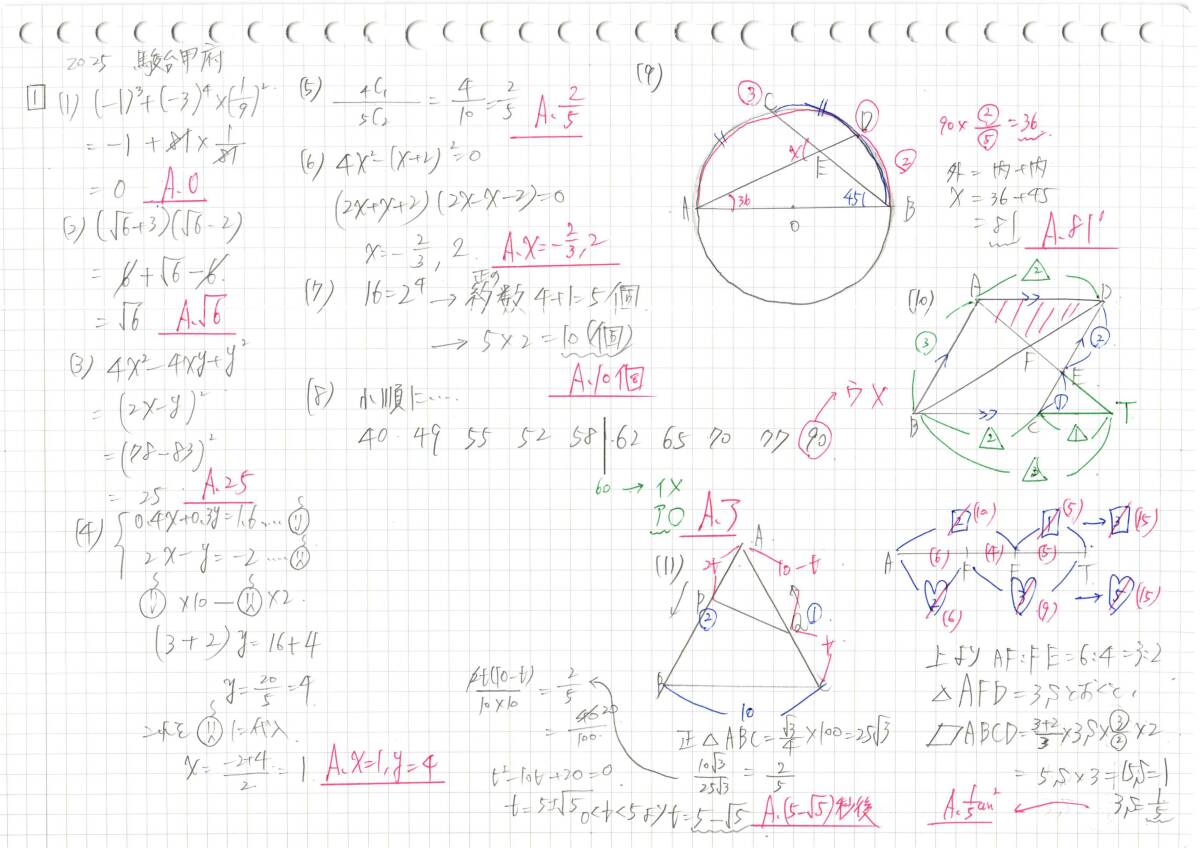 2025 駿台甲府
1
(1) (-1)³+(-3)⁴×(1/9)²
= -1 + 81 × 1/81
= 0 A.0
(2) (√6+3)(√6-2)
= 6+√6-6
= √6 A.√6
(3) 4x²-4xy+y²
= (2x-y)²
= (78-83)²
= 25 A.25
(4) { 0.4x+0.3y=1.6 ....
2x-y=-2 ....
×10 - ×2.
(3+2)y=16+4
y=20/5=4
これを に代入
x=(-2+4)/2=1 A.x=1, y=4
(5) 4C1/5C2 = 4/10 = 2/5 A.2/5
(6) 4x²-(x+2)²=0
(2x+x+2)(2x-x-2)=0
x=-2/3, 2. A.x=-2/3, 2
(7) 16=2⁴ → 正の約数 4+1=5個
→ 5×2=10(個)
A.10個
(8) 小順に....
40 49 55 52 58 62 65 70 77 90 → ウ×
60 → イ×
A.3
(9)
③ C D
x E ②
A 36 45 B
O
90×②/⑤=36
外=内+内
x=36+45
=81 A.81°
(10)
2
A D
③ ②
F
E
①
B C T
2 1
3
2 (10) 1 (5) → 3 (15)
(6) (4) (5)
A F E T
2 (6) 3 (9) → 5 (15)
上より AF:FE=6:4=3:2
△AFD=3Sとおくと、
▱ABCD=(3+2)/3×3S×③/②×2
=5S×3=15S=1
3S=1/5
A.1/5cm²
(11)
A
2t 10-t
P ② Q ①
t
B C
10
正△ABC=√3/4×100=25√3
10√3/25√3=2/5
2t(10-t)/10×10=2/5
=40/100
20
t²-10t+20=0
t=5±√5 0<t<5よりt=5-√5 A.(5-√5)秒後